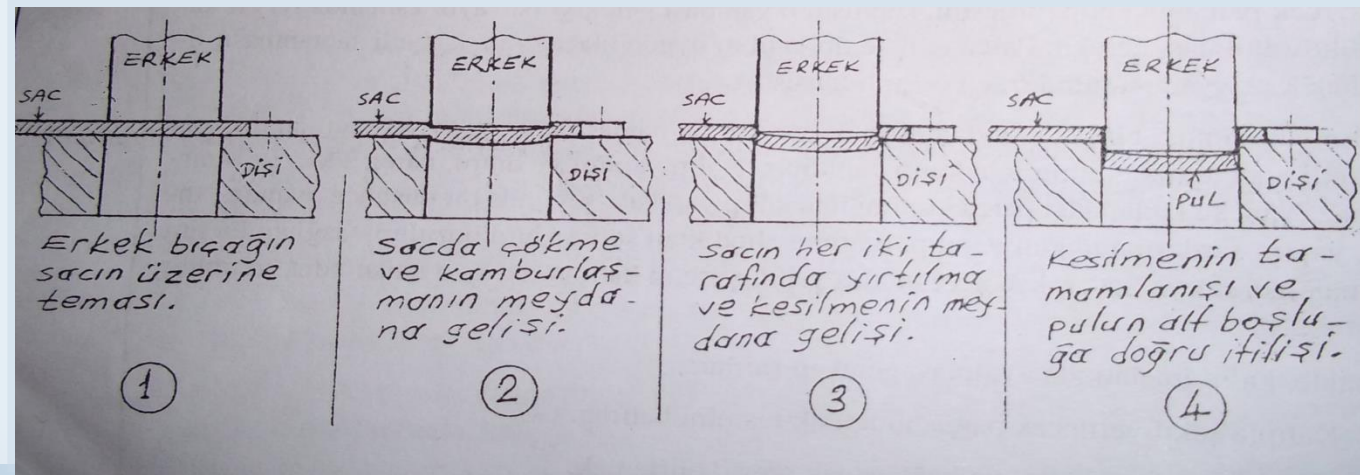 ERKEK
SAC
DİŞİ
Erkek bıçağın
sacın üzerine
teması.
1
ERKEK
SAC
DİŞİ
Sacda çökme
ve kamburlaş-
manın meyda-
na gelişi.
2
ERKEK
SAC
DİŞİ
Sacın her iki ta-
rafında yırtılma
ve kesilmenin mey-
dana gelişi.
3
ERKEK
SAC
DİŞİ
PUL
Kesilmenin ta-
mamlanışı ve
pulun alt boşlu-
ğa doğru itilişi.
4